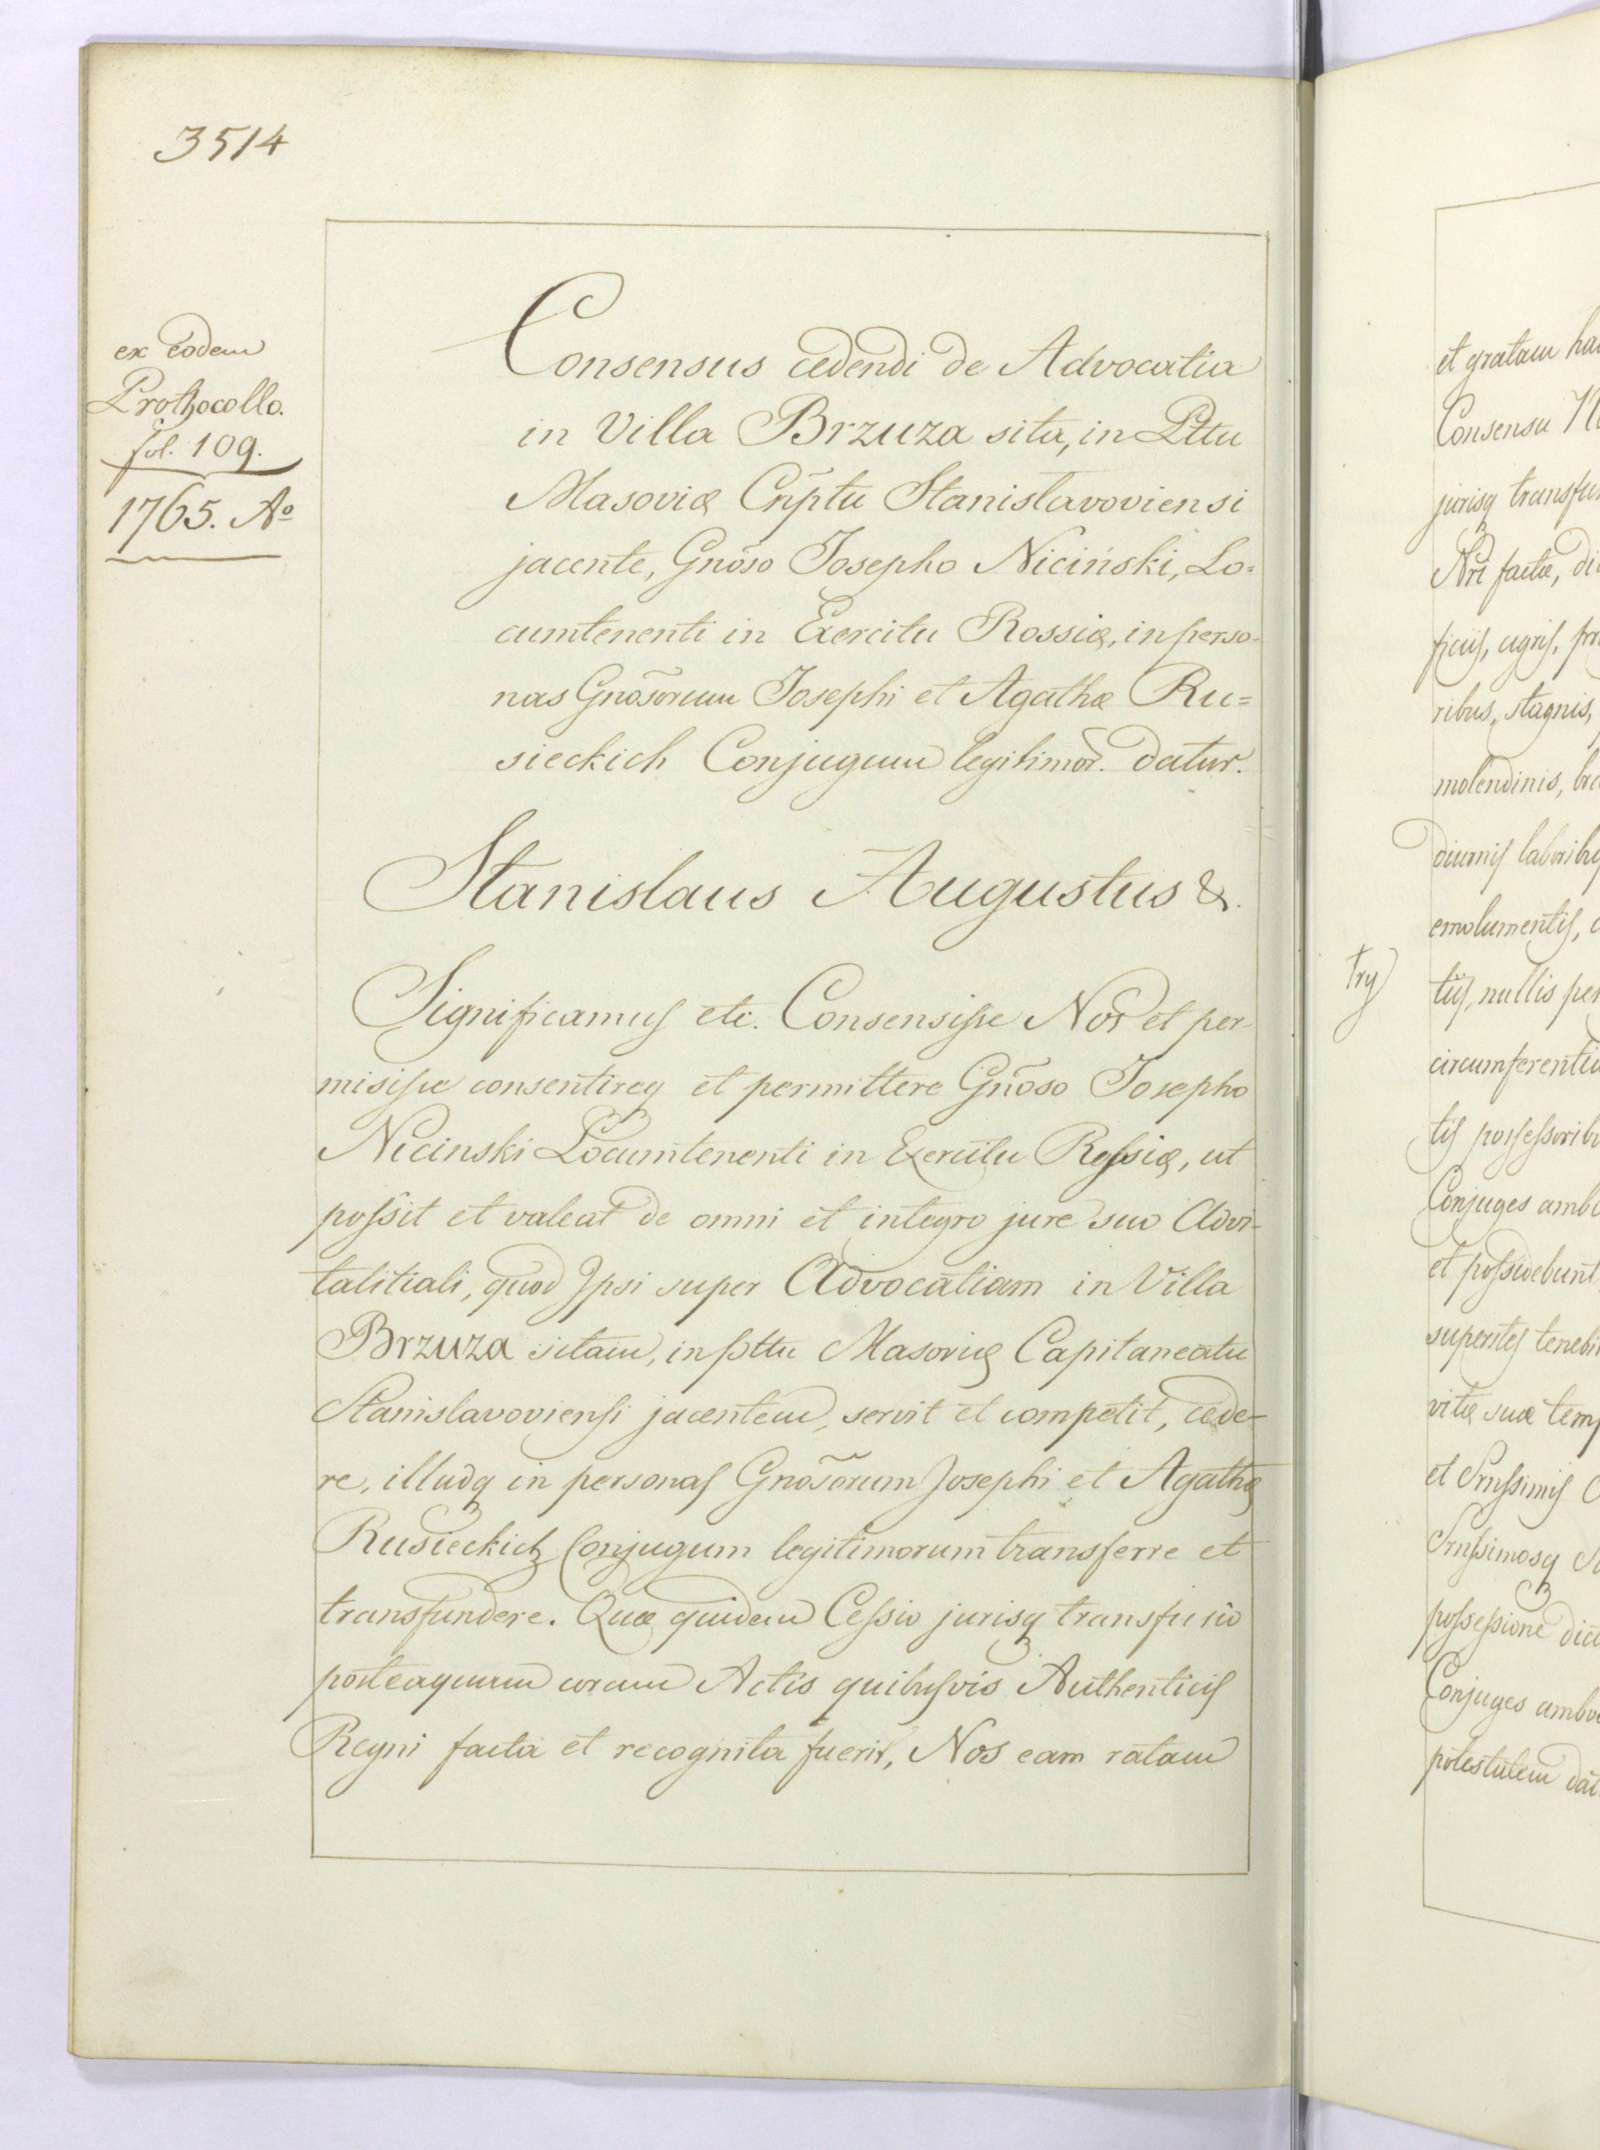 3514
ex eodem
Prothocollo.
fol. 109.
1765. Aº
Consensus cedendi de Advocatia
in Villa Brzuza sita, in Pttu
Masoviæ Cñptu Stanislavoviensi
jacente, Gnõso Josepho Niciński, Lo=
cumtenenti in Exercitu Rossiæ, in perso-
nas Gnõsorum Josephi et Agathæ Ru=
sieckich Conjugum legitimor. datur.
Stanislaus Augustus &.
Significamus etc. Consensisse Nos et per-
misisse consentireq et permittere Gnõso Josepho
Nicinski Locumtenenti in Exercitu Rossiæ, ut
possit et valeat de omni et integro jure suo Advi-
talitiali, quod Ipsi super Advocatiam in Villa
Brzuza sitam, in pttu Masoviæ Capitaneatu
Stanislavoviensi jacentem, servit et competit, cede-
re, illudq in personas Gnõsorum Josephi et Agathæ
Rusieckich Conjugum legitimorum transferre et
transfundere. Quæ quidem Cessio jurisq transfusio
posteaquam coram Actis quibusvis Authenticis
Regni facta et recognita fuerit, Nos eam ratam
et gratam
Consensu
jurisq
Nri factæ,
ficiis, agris,
ribus, stagnis,
molendinis,
diurnis
emolumentis,
try
tiis, nullis
tis
Conjuges
et possidebunt
superstes
vitæ suæ
et
possessione
Conjuges
potestatem